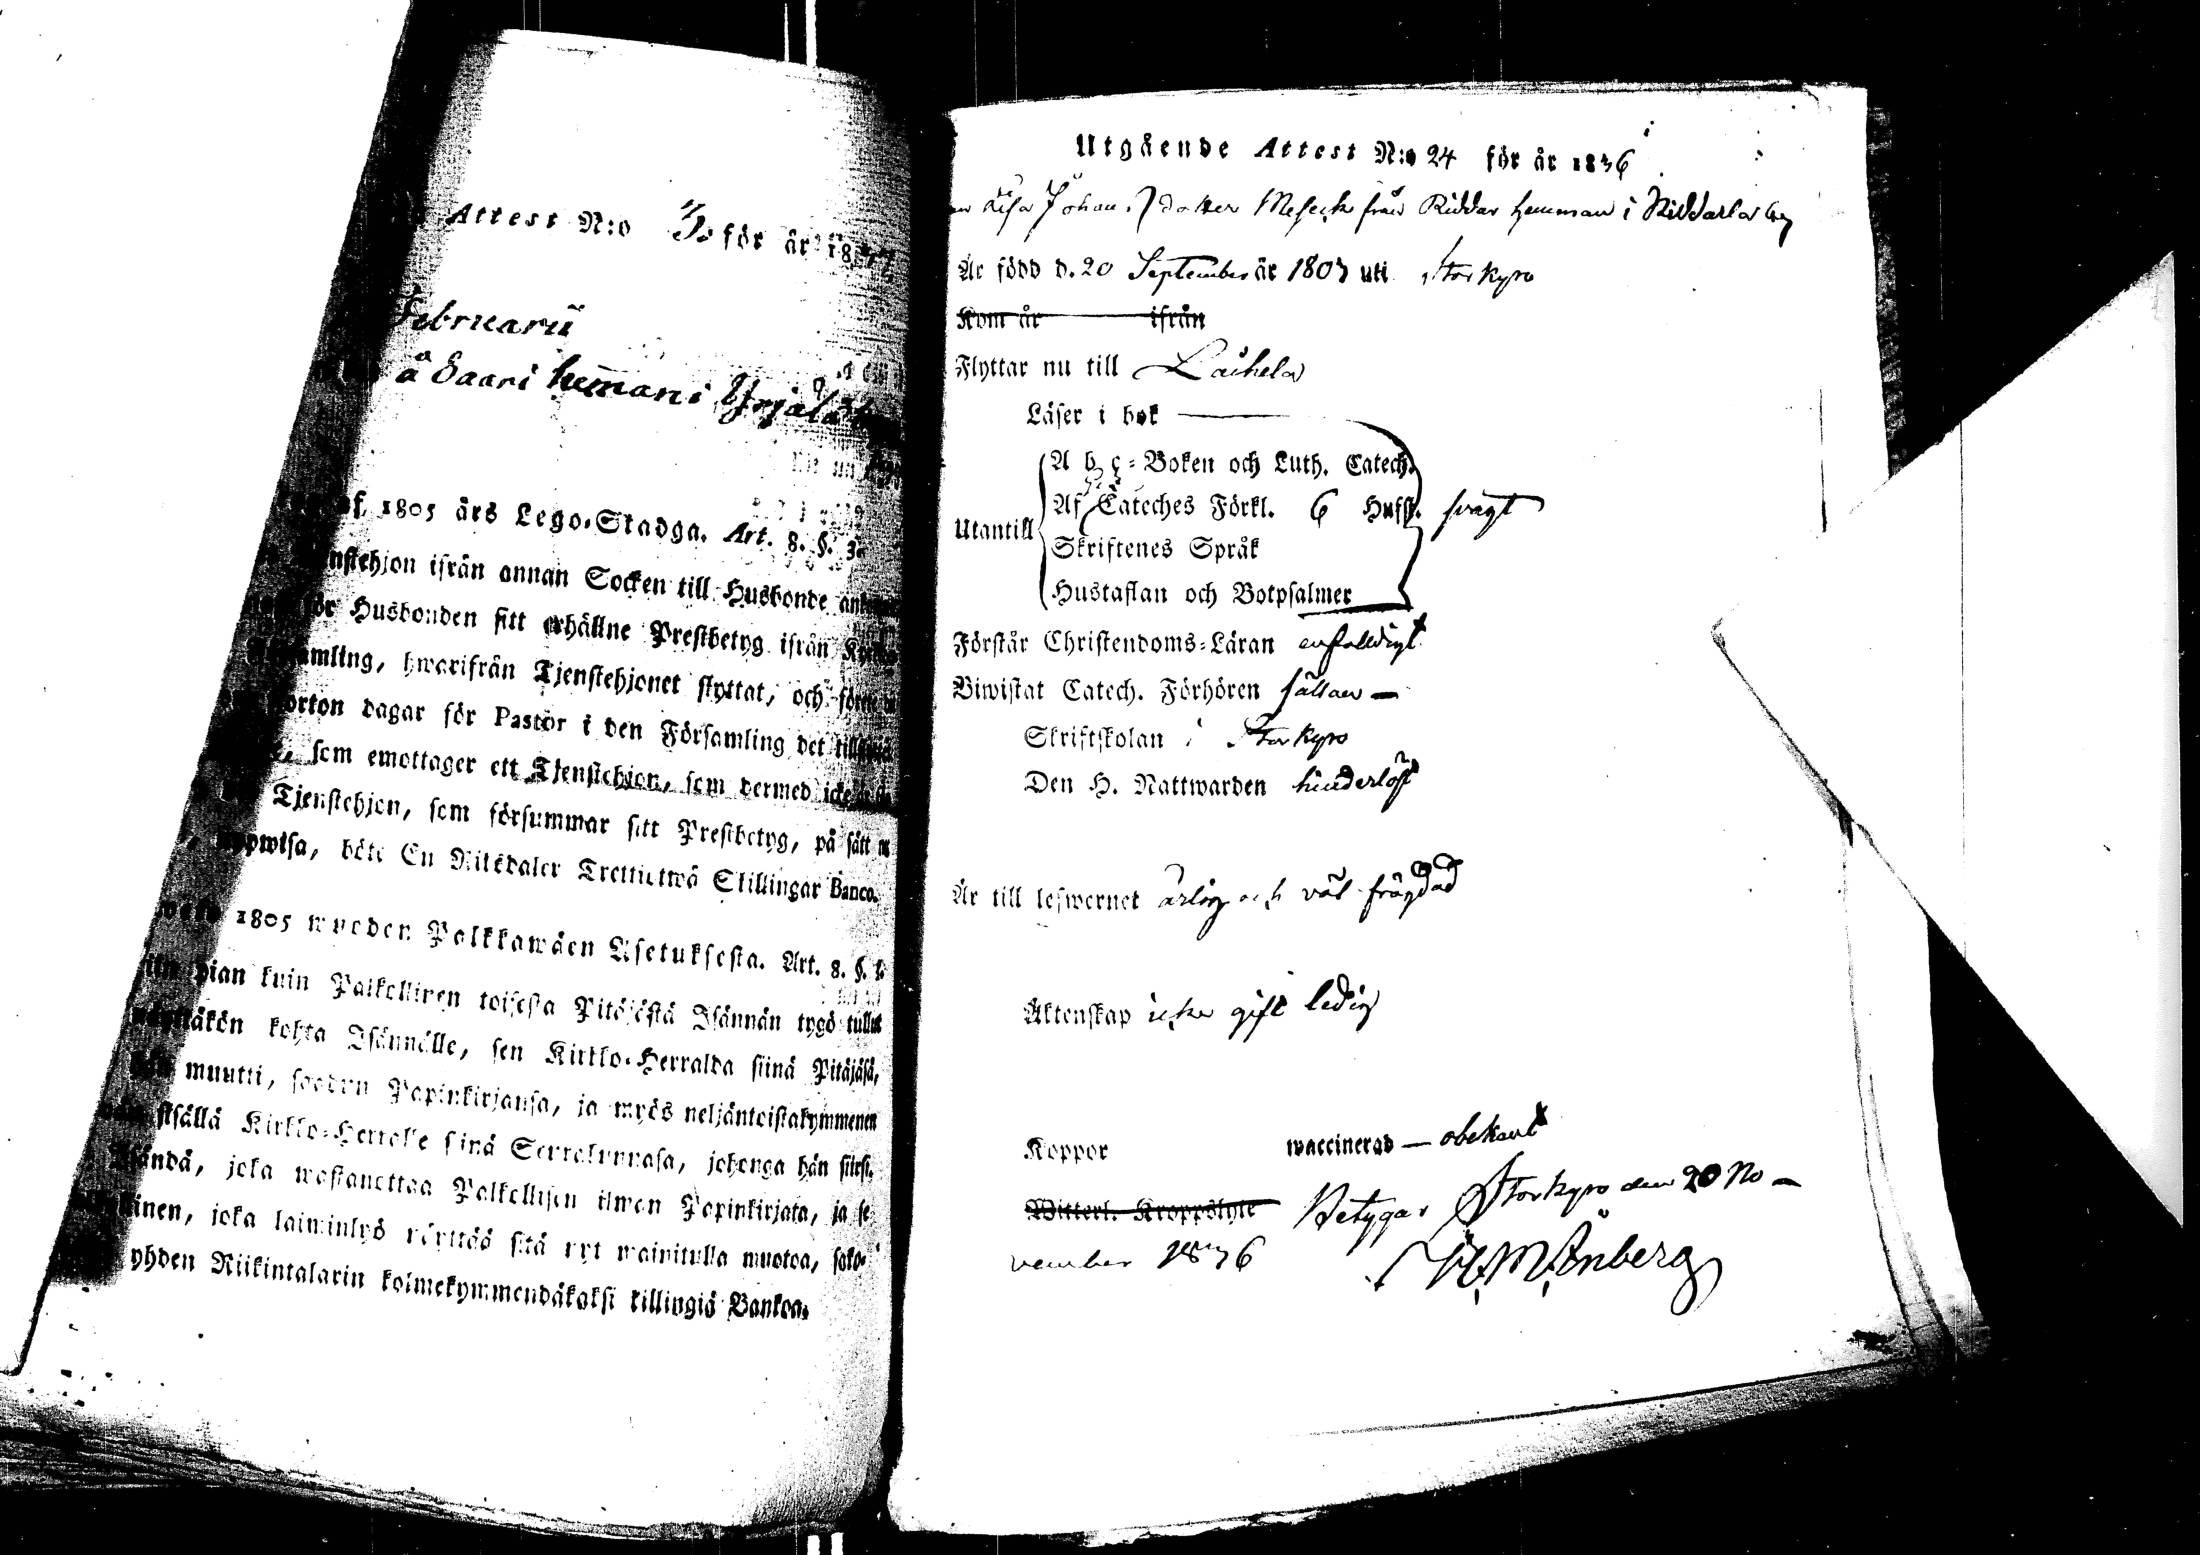 Attest N:o för år 18
Februarii
å Saari hemman i Yrjälä
af 1805 års Lego-Stadga. Art. 8. §. 3.
Tjenstehjon ifrån annan Socken till Husbonde
för Husbonden sitt erhållne Prestbetyg ifrån
Församling, hwarifrån Tjenstehjonet flyttat, och
dagar för Pastor i den Församling det
som emottager ett Tjenstehjon, som dermed icke
Tjenstehjon, som försummar sitt Prestbetyg, på sätt
uppwisa, böte En Riksdaler Trettiotwå Skillingar Banco.
1805 wuoden Palkkawäen Asetuksesta. Art. 8. §.
pian kuin Palkollinen toisesta Pitäjästä Isännän tygö tullut
kohta Isännälle, sen Kirkko-Herralda siinä Pitäjäsä,
muutti, saadun Papinkirjansa, ja myös neljäntoistakymmenen
sisällä Kirkko-Herralle siinä Seurakunnasa, johonga hän siirsi.
Isändä, joka wastanottaa Palkollisen ilman Papinkirjata, ja se
joka laiminlyö näyttää sitä nyt mainitulla muotoa, sako-
yhden Riikintalarin kolmekymmendäkaksi killingiä Bankoa.
Utgående Attest N:o 24 för år 1836
Lisa Johans dotter Meseck från Riddar hemman i Riddarla by
Är född d. 20 September år 1807 uti Storkyro
Kom år ifrån
Flyttar nu till Laihela
Läser i bok
A b c-Boken och Luth. Catech.
Utantill Af Cateches Förkl. 6 Hufst. svagt
Skriftenes Språk
Hustaflan och Botpsalmer
Förstår Christendoms-Läran enfaldigt
Biwistat Catech. Förhören sällan —
Skriftskolan i Storkyro
Den H. Nattwarden hinderlöst
Är till lefwernet ärlig och väl frägdad
Äktenskap icke gift ledig
Koppor waccinerad — obekant
Witterl. Kroppslyte Betygar Storkyro den 20 No-
vember 1836